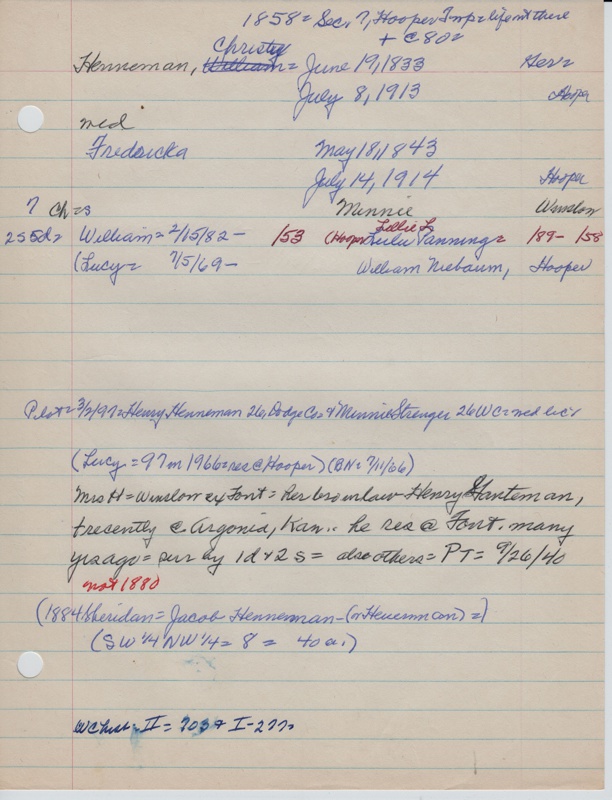 1858= Sec. 7, Hooper Twp= life mt there
+ C 80=
Christy
Henneman, William= June 19, 1833 Ger=
July 8, 1913 Hooper
med
Fredericka May 18, 1843
July 14, 1914 Hooper
7 ch=s Minnie Winslow
Lillie L
2s 5d= William= 2/15/82 - /53 (Hooper Lulu Panning= /89- /58
(Lucy= 7/5/69- William Niebaum, Hooper
Plot= 3/2/97= Henry Henneman 26, Dodge Co= & Minnie Strenger 26 WC= med lic
(Lucy = 97 in 1966= res @ Hooper) (BN= 7/11/66)
Mrs H= Winslow ex Font= her bro inlaw Henry Ganteman,
recently @ Argonia, Kan.. he res @ Font. many
yrs ago= sur by 1d & 2s= also others= PT= 9/26/40
not 1880
(1884 Sheridan= Jacob Henneman- (or Heuermann) =)
(SW 1/4 NW 1/4= 8 = 40 a.)
WC hist- II= 703 & I-277=